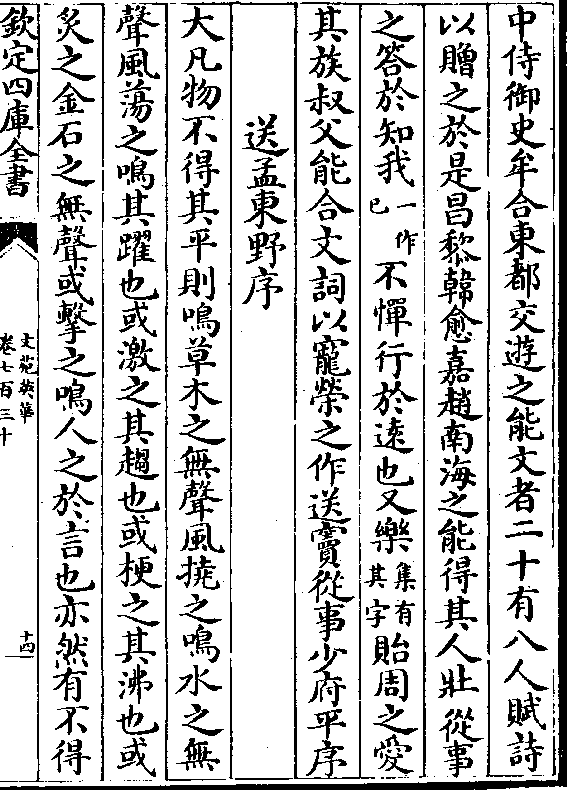 中侍御史牟合東都交遊之能文者二十有八人賦詩
以贈之於是昌黎韓愈嘉趙南海之能得其人壯從事
之答於知我一作已不憚行於遠也又樂集有其字貽周之愛
其族叔父能合文詞以寵榮之作送竇從事少府平序
送孟東野序
大凡物不得其平則鳴草木之無聲風撓之鳴水之無
聲風蕩之鳴其躍也或激之其趨也或梗之其沸也或
炙之金石之無聲或擊之鳴人之於言也亦然有不得
欽定四庫全書
文苑英華
卷七百三十
十四